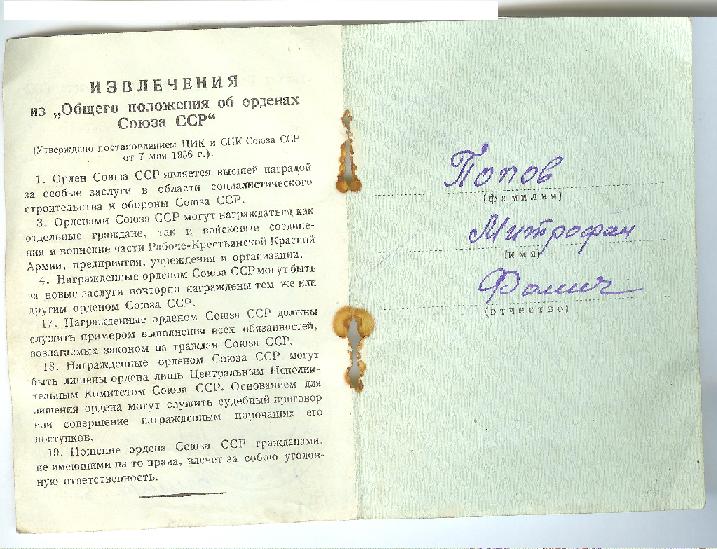 ИЗВЛЕЧЕНИЯ
из „Общего положения об орденах
Союза ССР“
(Утверждено постановлением ЦИК и СНК Союза ССР
от 7 мая 1936 г.).
1. Орден Союза ССР является высшей наградой
за особые заслуги в области социалистического
строительства и обороны Союза ССР.
3. Орденами Союза ССР могут награждаться как
отдельные граждане, так и войсковые соедине-
ния и воинские части Рабоче-Крестьянской Красной
Армии, предприятия, учреждения и организации.
4. Награжденные орденом Союза ССР могут быть
за новые заслуги вторично награждены тем же или
другим орденом Союза ССР.
17. Награжденные орденом Союза ССР должны
служить примером выполнения всех обязанностей,
возлагаемых законом на граждан Союза ССР.
18. Награжденные орденом Союза ССР могут
быть лишены ордена лишь Центральным Исполни-
тельным Комитетом Союза ССР. Основанием для
лишения ордена могут служить судебный приговор
или совершение награжденным порочащих его
поступков.
19. Ношение ордена Союза ССР гражданами,
не имеющими на то права, влечет за собою уголов-
ную ответственность.
Попов
(фамилия)
Митрофан
(имя)
Фомич
(отчество)